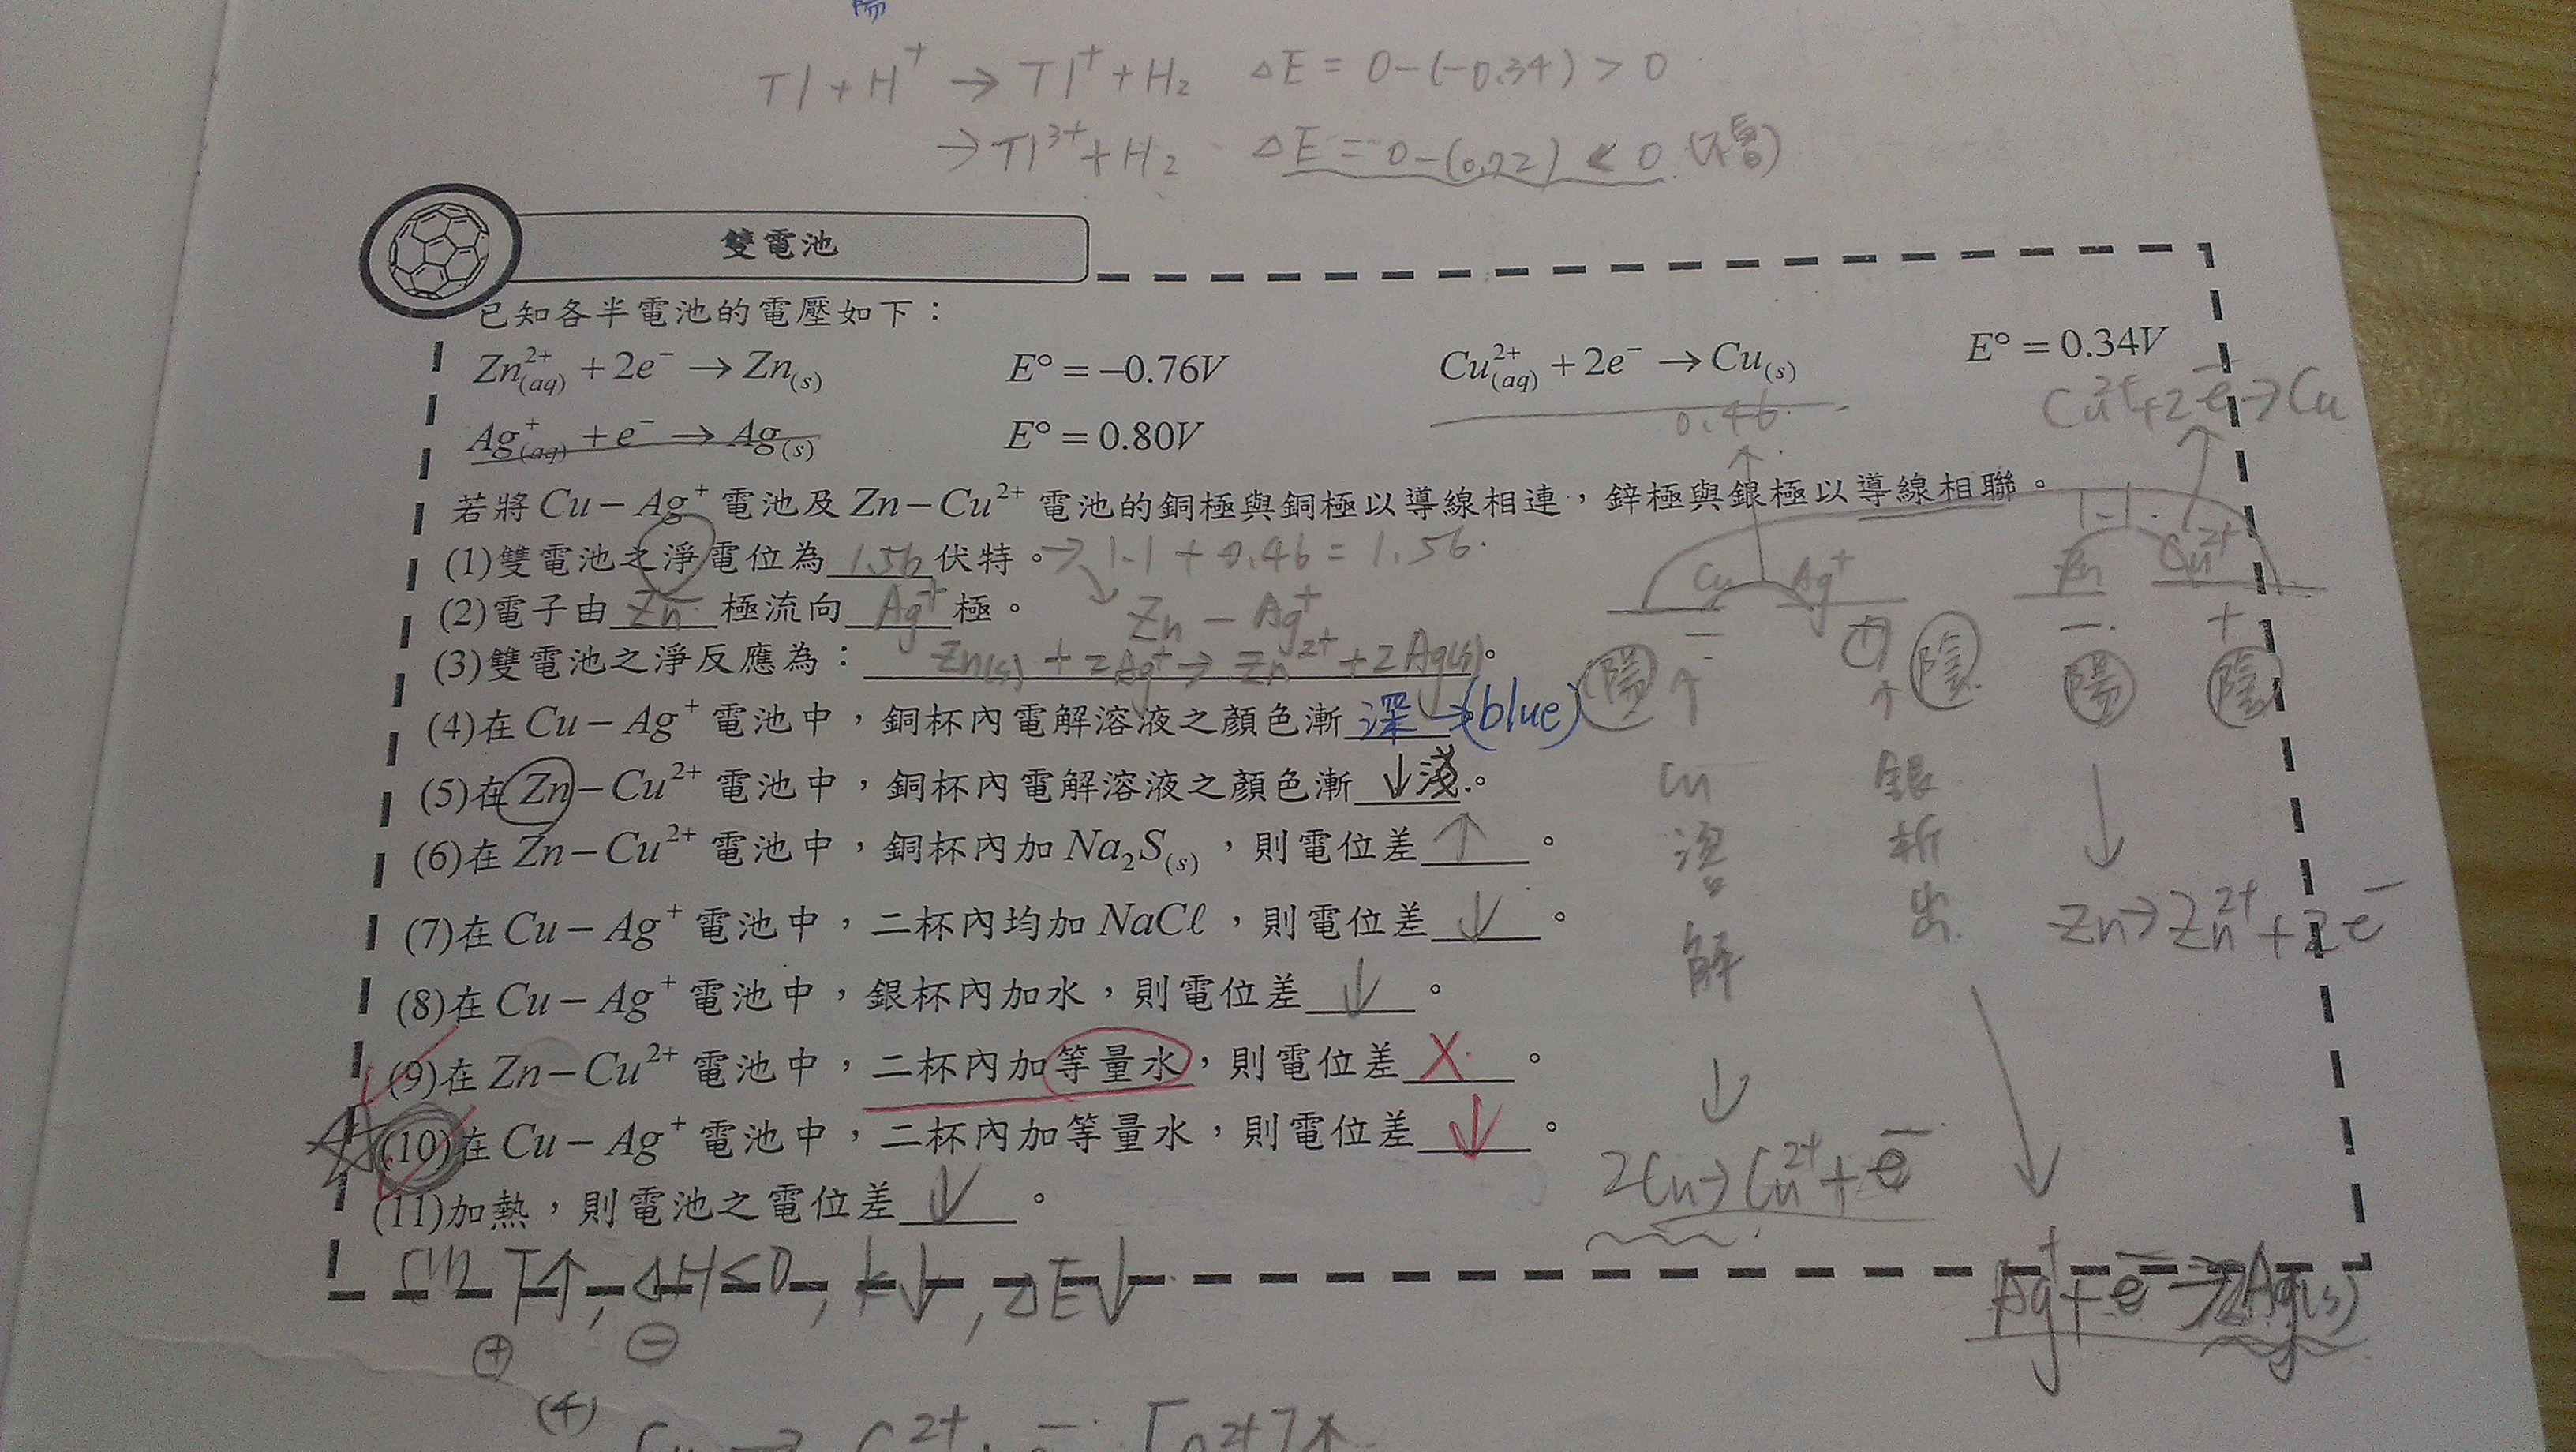 陽
Tl + H⁺ → Tl⁺ + H₂ ΔE = 0-(-0.34) > 0
→ Tl³⁺ + H₂ ΔE = 0-(0.72) < 0 (不會)
雙電池
已知各半電池的電壓如下：
Zn²⁺(aq) + 2e⁻ → Zn(s) E° = −0.76V Cu²⁺(aq) + 2e⁻ → Cu(s) E° = 0.34V
Ag⁺(aq) + e⁻ → Ag(s) E° = 0.80V 0.46 Cu²⁺+2e⁻→Cu
若將Cu−Ag⁺電池及Zn−Cu²⁺電池的銅極與銅極以導線相連，鋅極與銀極以導線相聯。
(1)雙電池之淨電位為1.56伏特。→ 1.1 + 0.46 = 1.56. Cu Ag⁺ 1.1 Zn Cu²⁺
(2)電子由Zn極流向Ag⁺極。 Zn − Ag⁺ − + − +
(3)雙電池之淨反應為：Zn(s) + 2Ag⁺ → Zn²⁺ + 2Ag(s)。 陽 陰 陽 陰
(4)在Cu−Ag⁺電池中，銅杯內電解溶液之顏色漸深→(blue)
(5)在Zn−Cu²⁺電池中，銅杯內電解溶液之顏色漸↓淺。
(6)在Zn−Cu²⁺電池中，銅杯內加Na₂S(s)，則電位差↑。
(7)在Cu−Ag⁺電池中，二杯內均加NaCℓ，則電位差↓。
(8)在Cu−Ag⁺電池中，銀杯內加水，則電位差↓。
(9)在Zn−Cu²⁺電池中，二杯內加等量水，則電位差X。
(10)在Cu−Ag⁺電池中，二杯內加等量水，則電位差↓。
(11)加熱，則電池之電位差↓。
Cu溶解
銀析出
Zn→Zn²⁺+2e⁻
2Cu→Cu²⁺+e⁻
Ag⁺+e⁻→2Ag(s)
(11) T↑, ΔH<0, k↓, ΔE↓
⊕ ⊖
(4)